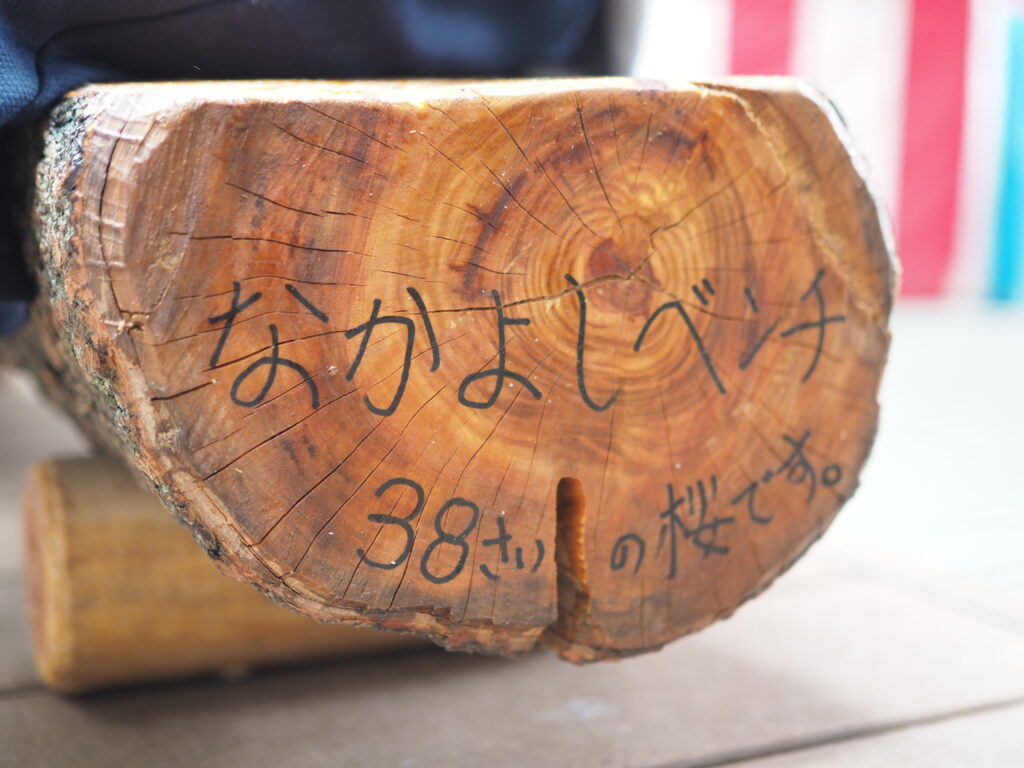 なかよしベンチ
38さいの桜です。